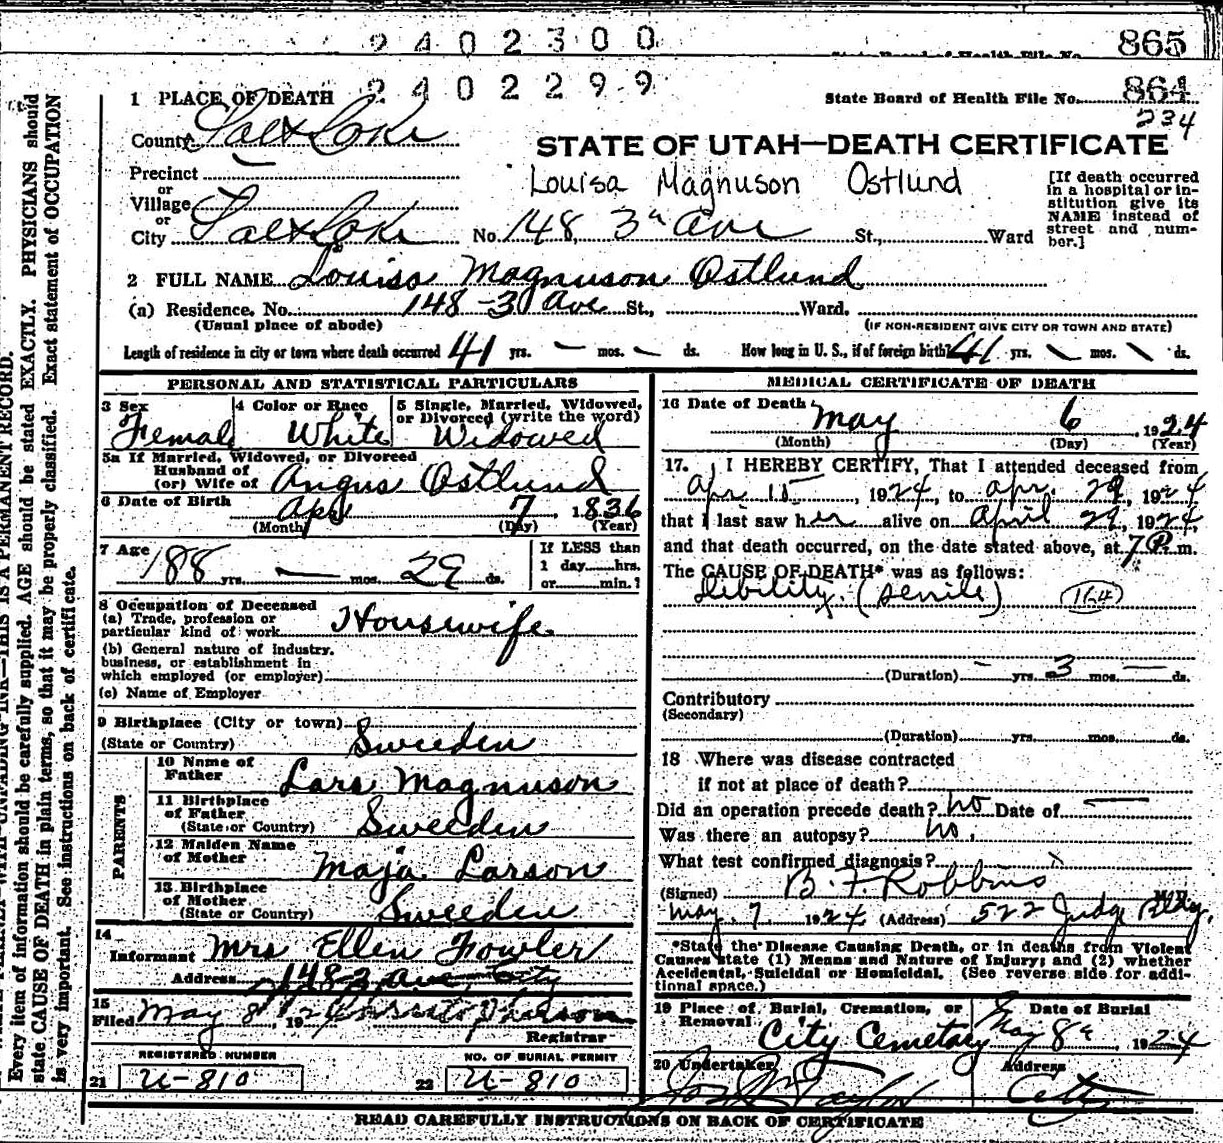 2402300
State Board of Health File No. 865
2402299
State Board of Health File No. 864
234
1 PLACE OF DEATH
County Salt Lake
STATE OF UTAH—DEATH CERTIFICATE
Precinct
or
Village
or
City Salt Lake
Louisa Magnuson Ostlund
No. 148, 3" Ave St., Ward
[If death occurred
in a hospital or in-
stitution give its
NAME instead of
street and num-
ber.]
2 FULL NAME Louisa Magnuson Ostlund
(a) Residence. No. 148-3 Ave St., Ward.
(Usual place of abode)
(IF NON-RESIDENT GIVE CITY OR TOWN AND STATE)
Length of residence in city or town where death occurred 41 yrs. — mos. — ds. How long in U. S., if of foreign birth? 41 yrs. mos. ds.
PERSONAL AND STATISTICAL PARTICULARS
3 Sex
Female
4 Color or Race
White
5 Single, Married, Widowed,
or Divorced (write the word)
Widowed
5a If Married, Widowed, or Divorced
Husband of
(or) Wife of Angus Ostlund
6 Date of Birth Apr 7, 1836
(Month) (Day) (Year)
7 Age
88 yrs. — mos. 29 ds.
If LESS than
1 day hrs.
or min.?
8 Occupation of Deceased
(a) Trade, profession or
particular kind of work Housewife
(b) General nature of industry,
business, or establishment in
which employed (or employer)
(c) Name of Employer
9 Birthplace (City or town)
(State or Country) Sweeden
PARENTS
10 Name of
Father Lars Magnuson
11 Birthplace
of Father
(State or Country) Sweeden
12 Maiden Name
of Mother Maja Larson
13 Birthplace
of Mother
(State or Country) Sweeden
14
Informant Mrs Ellen Fowler
Address 148-3 Ave, City
15
Filed May 8, 1924
Registrar
REGISTERED NUMBER
21 U-810
NO. OF BURIAL PERMIT
22 U-810
MEDICAL CERTIFICATE OF DEATH
16 Date of Death May 6, 1924
(Month) (Day) (Year)
17. I HEREBY CERTIFY, That I attended deceased from
Apr 15, 1924, to Apr. 29, 1924
that I last saw her alive on April 29, 1924,
and that death occurred, on the date stated above, at 7 P. m.
The CAUSE OF DEATH* was as follows:
Debility. (senile) 164
(Duration) — yrs. 3 mos. — ds.
Contributory
(Secondary)
(Duration) yrs. mos. ds.
18 Where was disease contracted
if not at place of death?
Did an operation precede death? no Date of —
Was there an autopsy? no.
What test confirmed diagnosis? x
(Signed) B. F. Robbins
M.D.
May, 7, 1924 (Address) 522 Judge Bldg.
*State the Disease Causing Death, or in deaths from Violent
Causes state (1) Means and Nature of Injury; and (2) whether
Accidental, Suicidal or Homicidal. (See reverse side for addi-
tional space.)
19 Place of Burial, Cremation, or
Removal
City Cemetary
Date of Burial
May 8" 1924
20 Undertaker
Taylor
Address
City
READ CAREFULLY INSTRUCTIONS ON BACK OF CERTIFICATE
WITH UNFADING INK—THIS IS A PERMANENT RECORD.
Every item of information should be carefully supplied. AGE should be stated EXACTLY. PHYSICIANS should
state CAUSE OF DEATH in plain terms, so that it may be properly classified. Exact statement of OCCUPATION
is very important. See instructions on back of certificate.